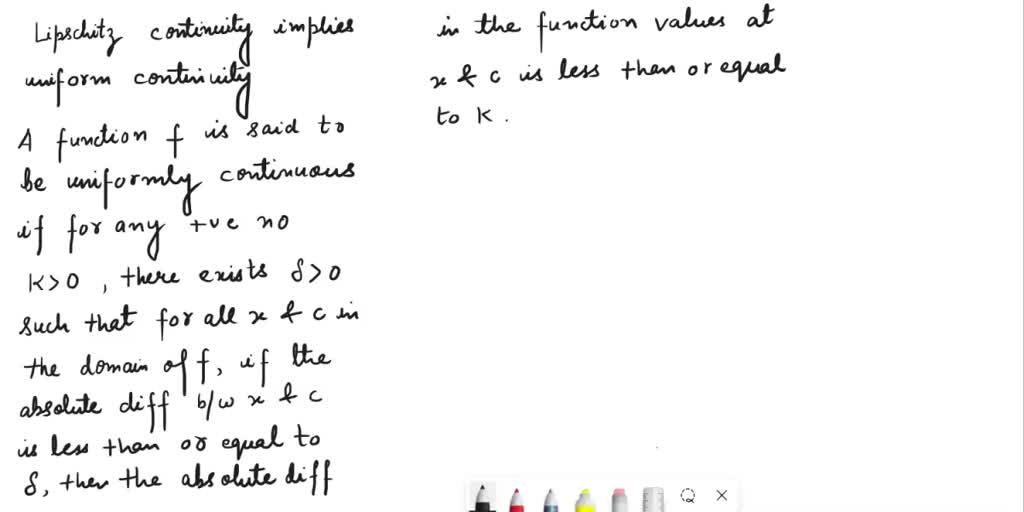 Lipschitz continuity implies
uniform continuity
A function f is said to
be uniformly continuous
if for any +ve no
K>0, there exists δ>0
such that for all x & c in
the domain of f, if the
absolute diff b/w x & c
is less than or equal to
δ, then the absolute diff
in the function values at
x & c is less than or equal
to K.